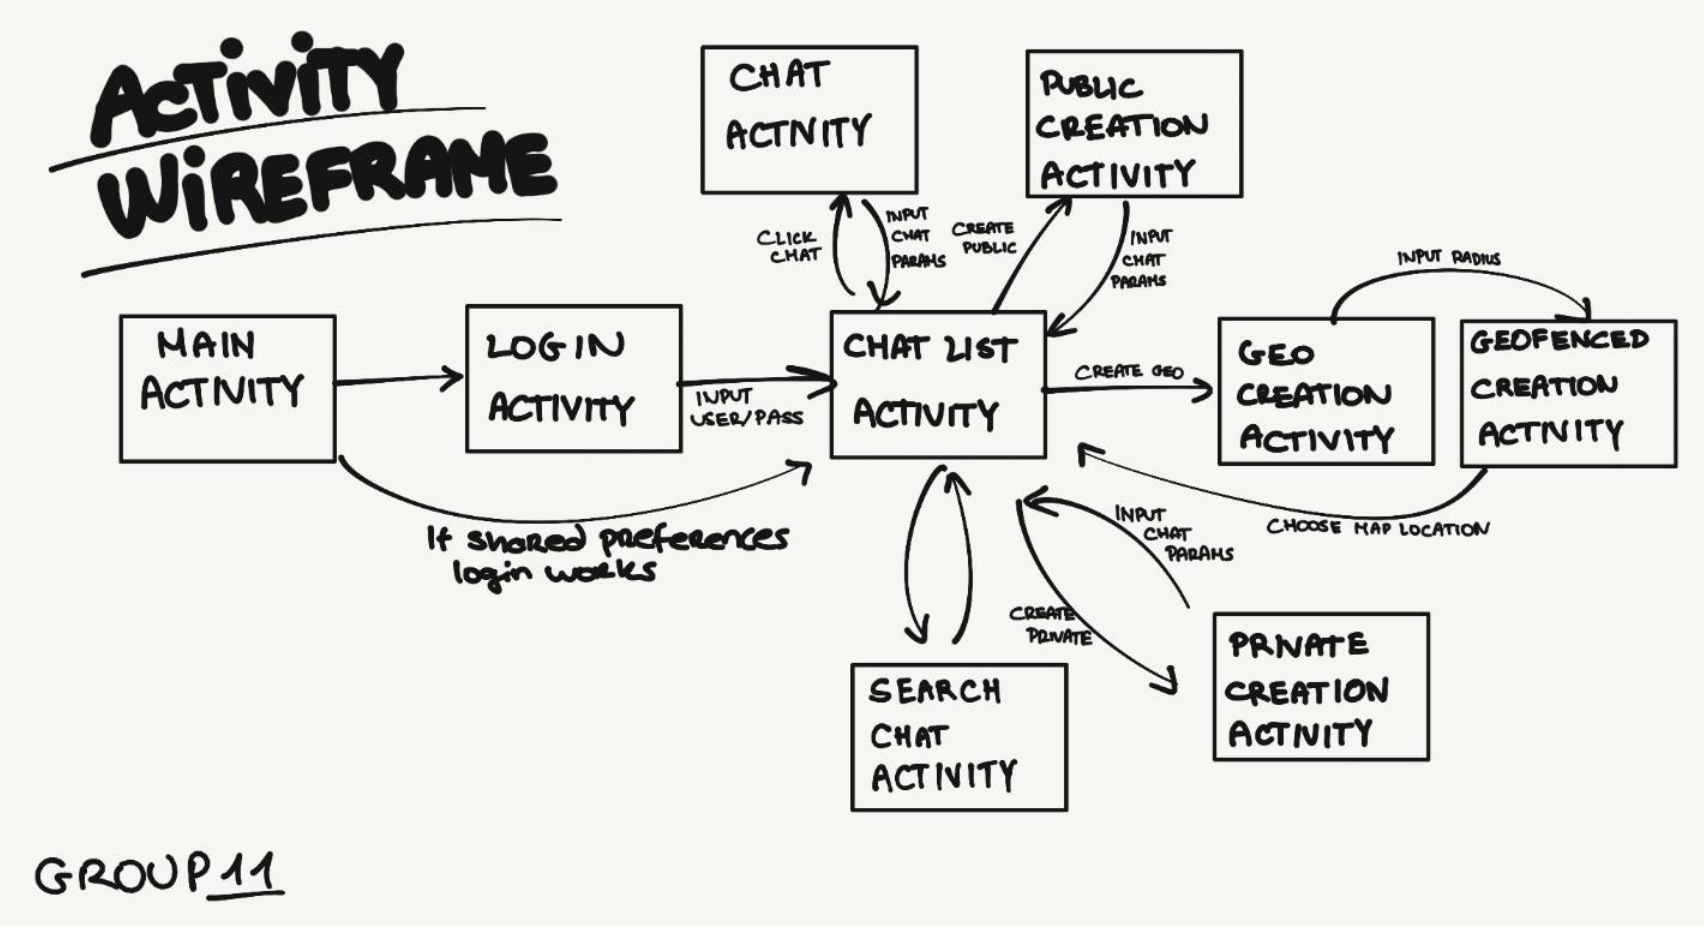 ACTIVITY
WIREFRAME
CHAT
ACTIVITY
PUBLIC
CREATION
ACTIVITY
CLICK
CHAT
INPUT
CHAT
PARAMS
CREATE
PUBLIC
INPUT
CHAT
PARAMS
INPUT RADIUS
MAIN
ACTIVITY
LOGIN
ACTIVITY
INPUT
USER/PASS
CHAT LIST
ACTIVITY
CREATE GEO
GEO
CREATION
ACTIVITY
GEOFENCED
CREATION
ACTIVITY
If shared preferences
login works
INPUT
CHAT
PARAMS
CHOOSE MAP LOCATION
CREATE
PRIVATE
SEARCH
CHAT
ACTIVITY
PRIVATE
CREATION
ACTIVITY
GROUP 11